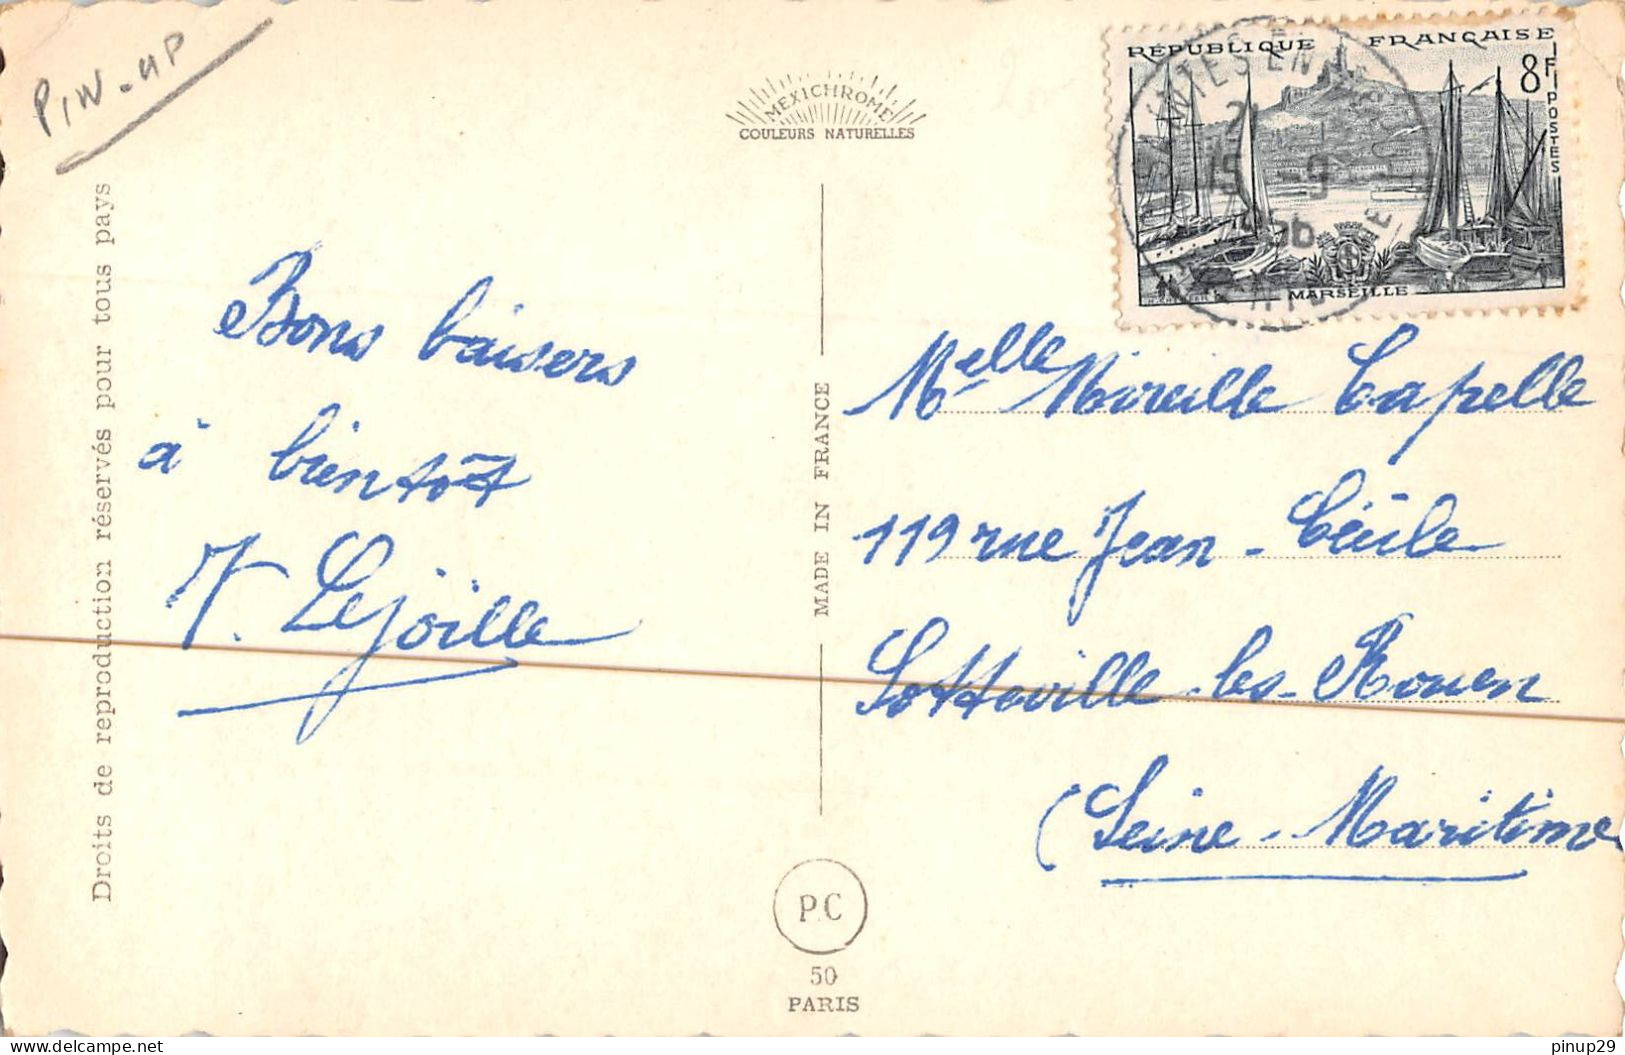 PIN-UP
MEXICHROME
COULEURS NATURELLES
RÉPUBLIQUE FRANÇAISE
8F
POSTES
21
15 -9
1956
MARSEILLE
Droits de reproduction réservés pour tous pays
Bons baisers
à bientôt
Lejoille
MADE IN FRANCE
Melle Mireille Capelle
119 rue Jean-Cécile
Sotteville-les-Rouen
(Seine-Maritime
P.C
50
PARIS
delcampe.net
pinup29